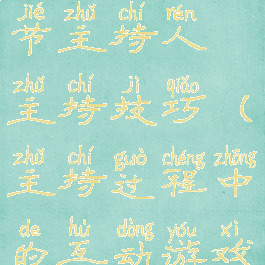 jié zhǔ chí rén
节主持人
zhǔ chí jì qiǎo
主持技巧（
zhǔ chí guò chéng zhōng
主持过程中
de hù dòng yóu xì
的互动游戏